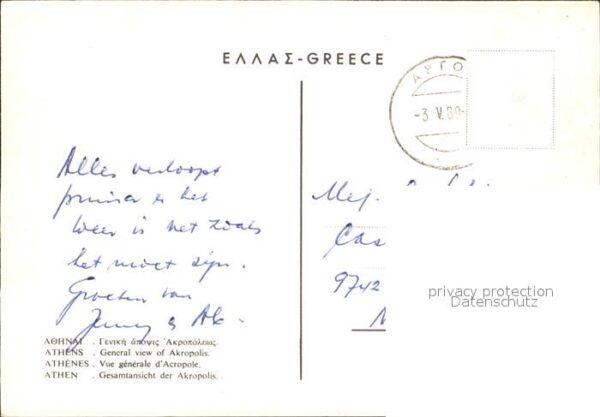 ΕΛΛΑΣ-GREECE
ΑΡΓΟ
-3 V.80-
Alles verloopt
prima en het
weer is net zoals
het moet zijn.
Groeten van
Jenny & Ab.
Mej.
Cas
9742
N
privacy protection
Datenschutz
ΑΘΗΝΑΙ . Γενικὴ ἄποψις Ἀκροπόλεως.
ATHENS . General view of Akropolis.
ATHÈNES . Vue générale d'Acropole.
ATHEN . Gesamtansicht der Akropolis.